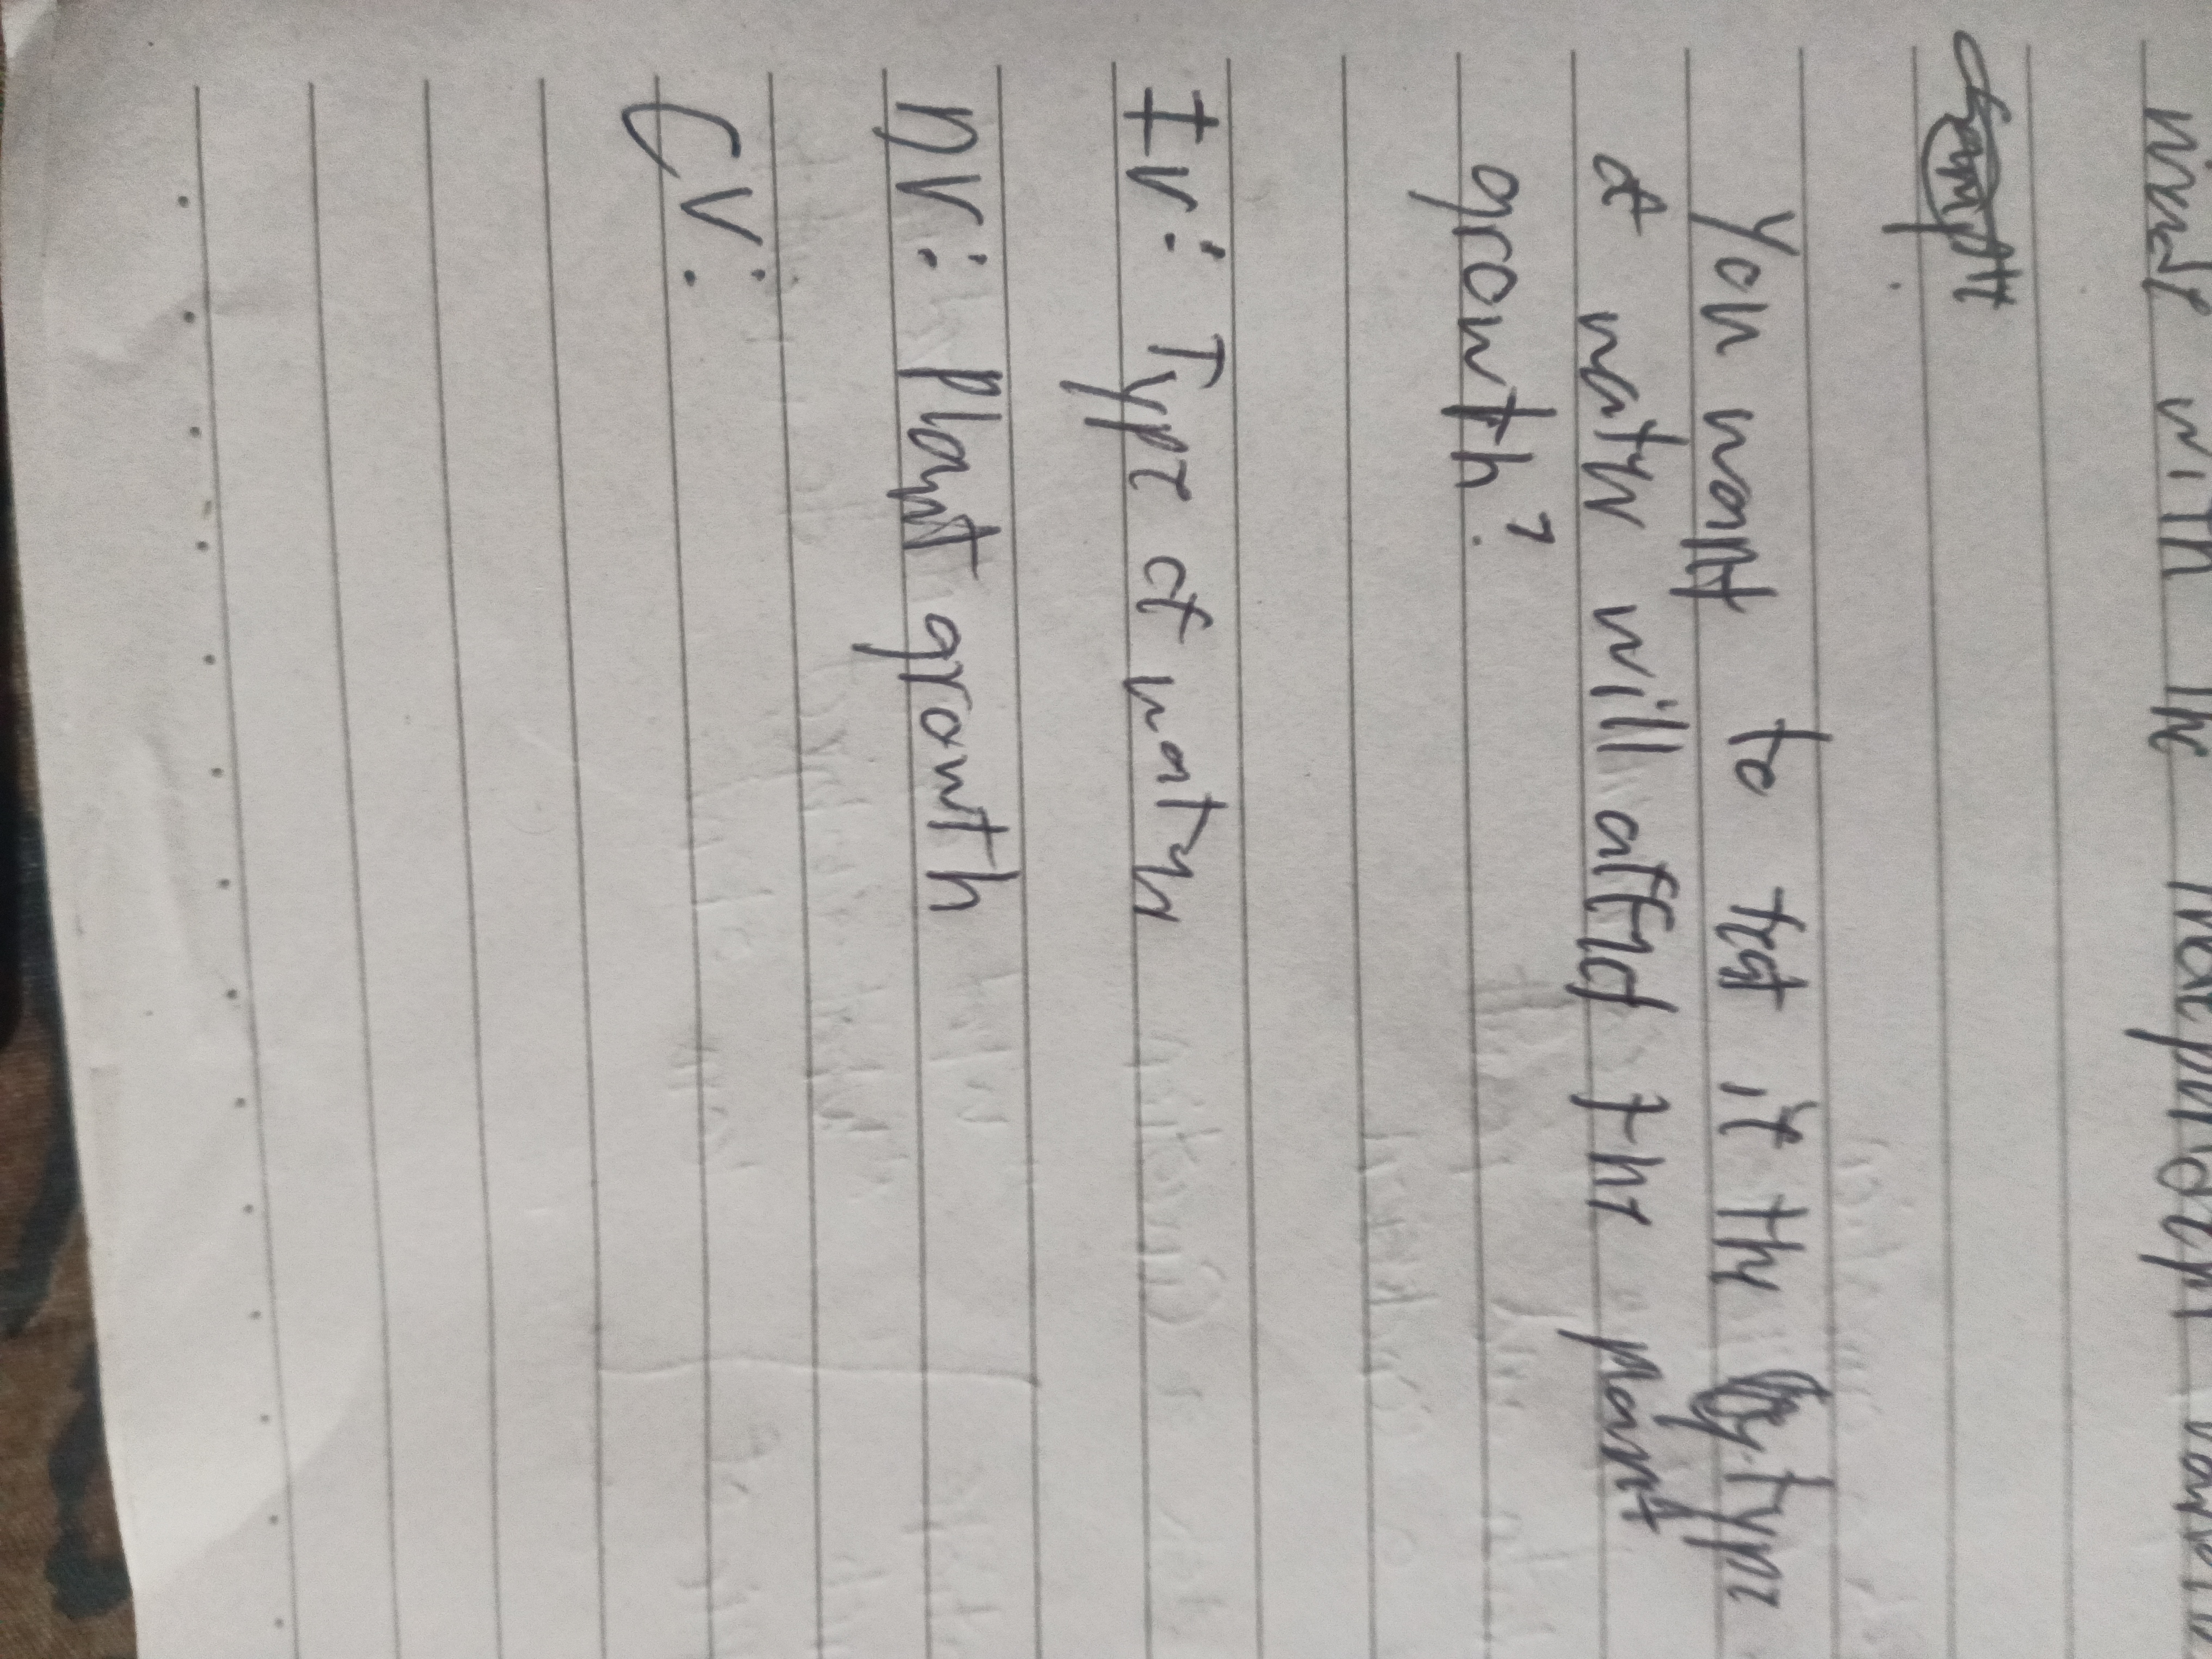 with the
You want to test if the type
of water will affect the plant
growth?
IV: Type of water
DV: Plant growth
CV: